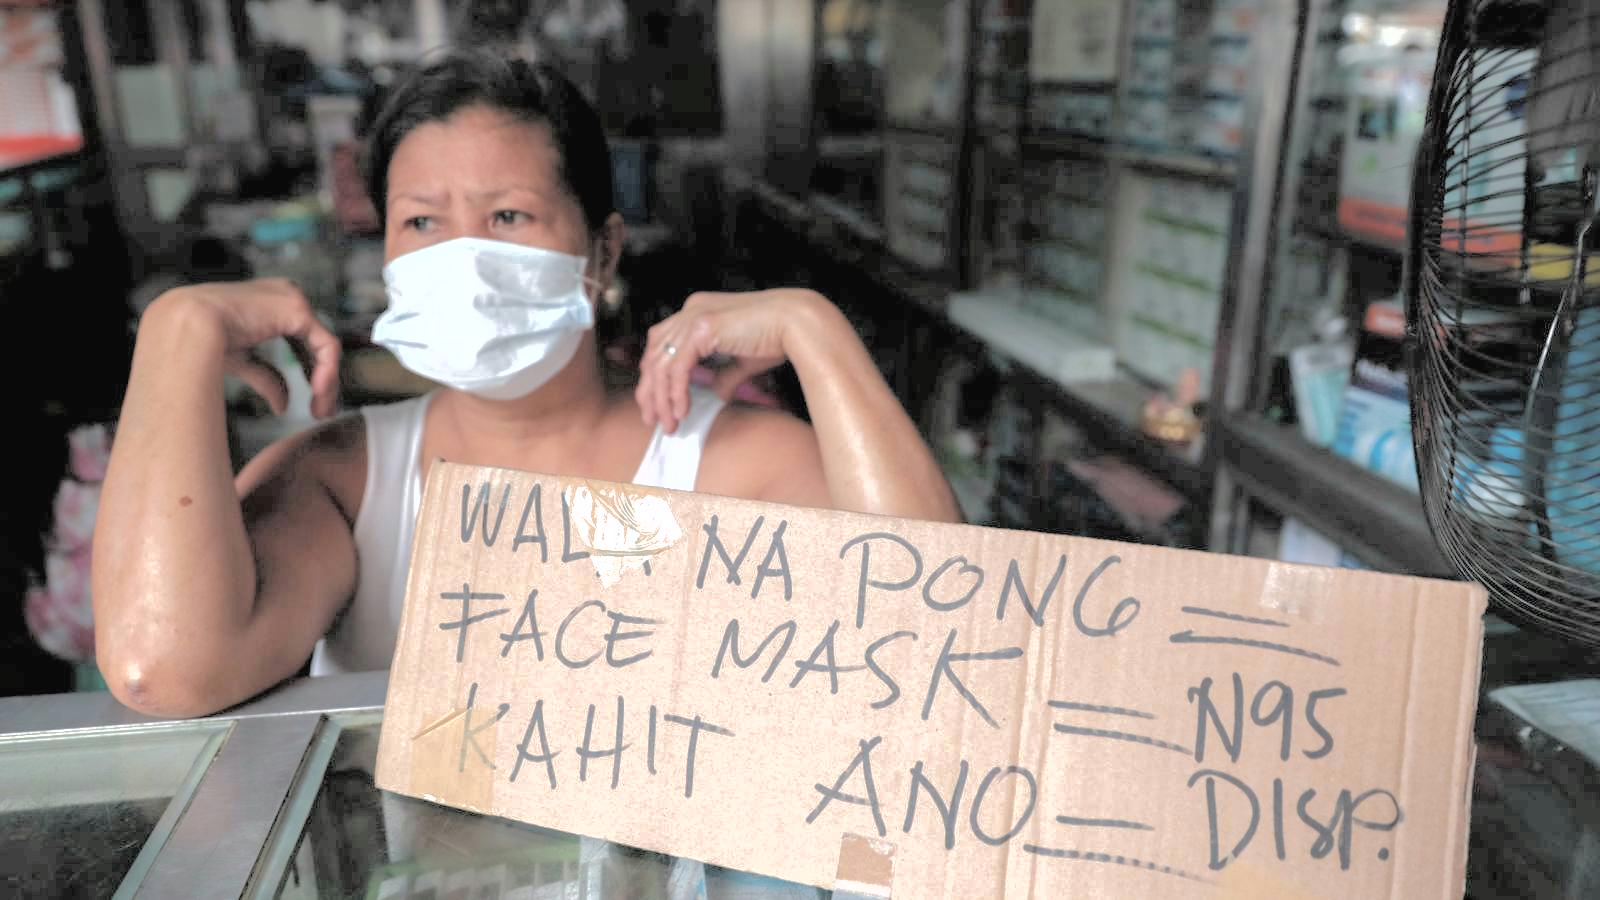 WALA NA PONG =
FACE MASK = N95
KAHIT ANO = DISP.